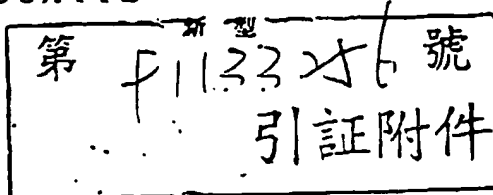 新型
第 F1133256 號
引証附件